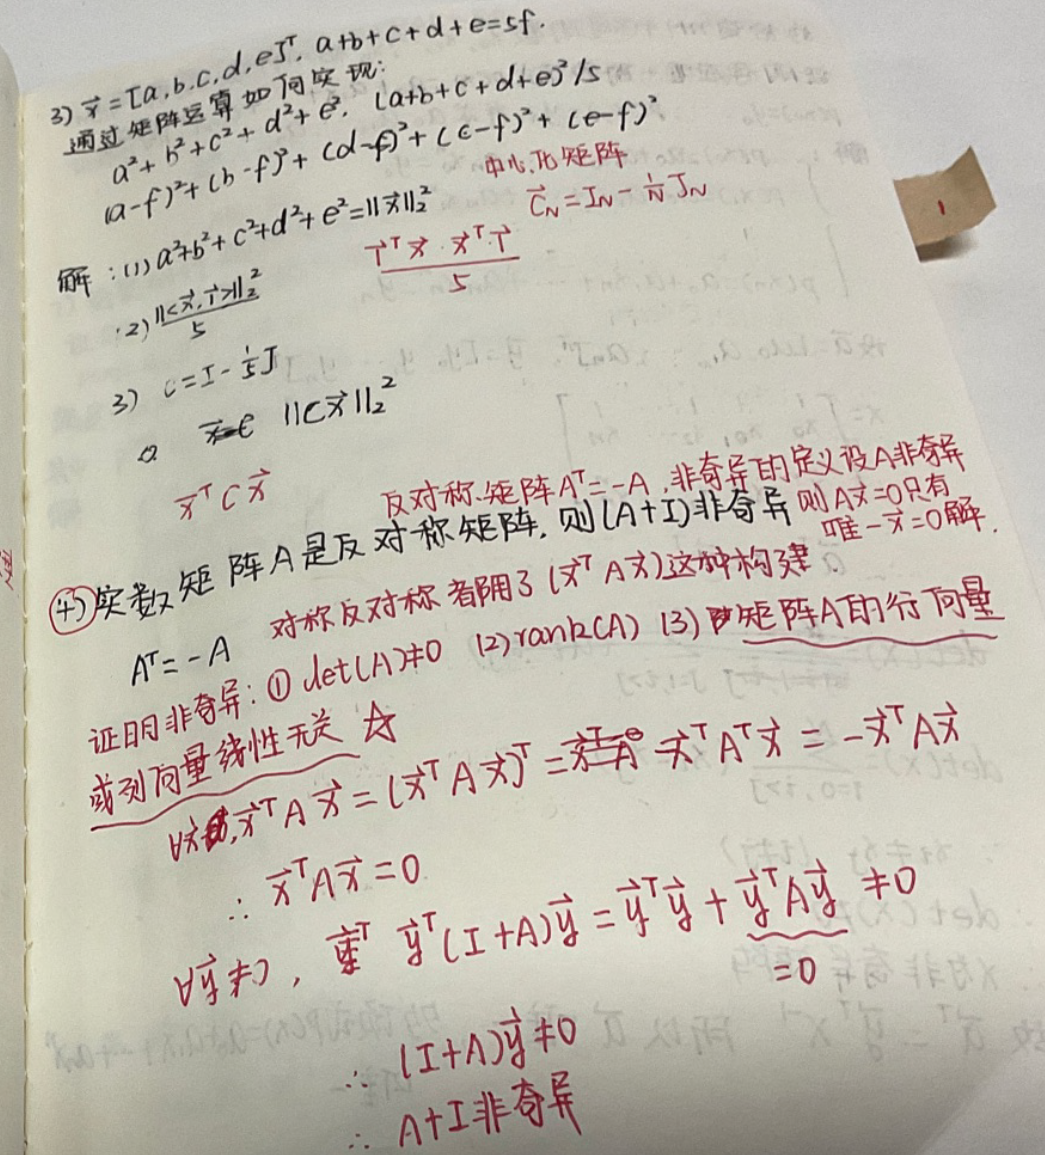 3) x⃗=[a,b,c,d,e]ᵀ, a+b+c+d+e=5f.
通过矩阵运算如何实现:
a²+b²+c²+d²+e², (a+b+c+d+e)²/5
(a-f)²+(b-f)²+(d-f)²+(c-f)²+(e-f)²
中心化矩阵
C⃗_N=I_N-1/N J_N
解:(1) a²+b²+c²+d²+e²=||x⃗||₂²
1⃗ᵀx⃗·x⃗ᵀ·1⃗/5
(2) ||<x⃗,1⃗>||₂²/5
3) C=I-1/5 J
||Cx⃗||₂²
x⃗ᵀCx⃗
反对称矩阵Aᵀ=-A,非奇异的定义设A非奇异
则Ax⃗=0只有
唯一x⃗=0解.
4) 实数矩阵A是反对称矩阵,则(A+I)非奇异
对称反对称都用了(x⃗ᵀAx⃗)这种构建.
Aᵀ=-A
证明非奇异:① det(A)≠0 (2) rank(A) (3) 矩阵A的行向量
或列向量线性无关 ☆
∀x⃗,x⃗ᵀAx⃗=(x⃗ᵀAx⃗)ᵀ=x⃗ᵀAᵀx⃗=-x⃗ᵀAx⃗
∴ x⃗ᵀAx⃗=0
∀y⃗≠0, y⃗ᵀ(I+A)y⃗=y⃗ᵀy⃗+y⃗ᵀAy⃗≠0
=0
∴ (I+A)y⃗≠0
∴ A+I非奇异
1